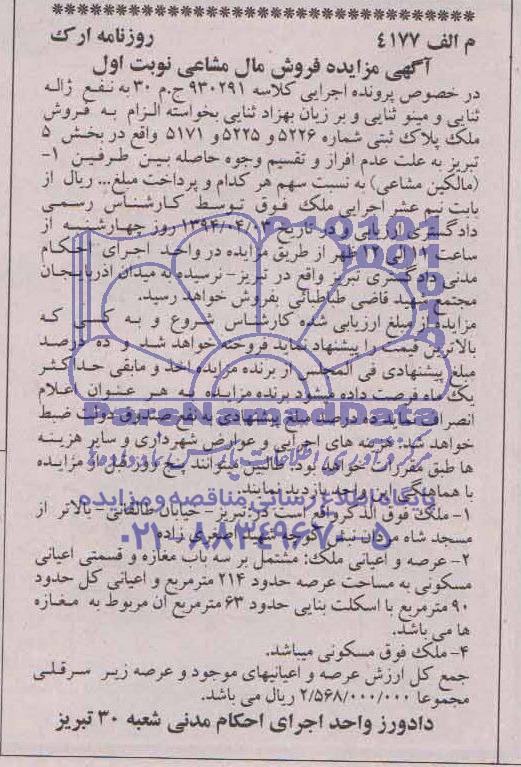 م الف ۴۱۷۷ روزنامه ارک
آگهی مزایده فروش مال مشاعی نوبت اول
در خصوص پرونده اجرایی کلاسه ۹۳۰۲۹۱ ج.م ۳۰ به نفع ژاله
ثنایی و مینو ثنایی و بر زیان بهزاد ثنایی بخواسته الزام به فروش
ملک پلاک ثبتی شماره ۵۲۲۶ و ۵۲۲۵ و ۵۱۷۱ واقع در بخش ۵
تبریز به علت عدم افراز و تقسیم وجوه حاصله بین طرفین ۱-
(مالکین مشاعی) به نسبت سهم هر کدام و پرداخت مبلغ... ریال از
بابت نیم عشر اجرایی ملک فوق توسط کارشناس رسمی
دادگستری ارزیابی و در تاریخ ۱۳۹۴/۰۴/۰۳ روز چهارشنبه از
ساعت ۱۱ الی ۱۲ ظهر از طریق مزایده در واحد اجرای احکام
مدنی دادگستری تبریز واقع در تبریز- نرسیده به میدان آذربایجان
مجتمع شهید قاضی طباطبائی بفروش خواهد رسید.
مزایده از مبلغ ارزیابی شده کارشناس شروع و به کسی که
بالاترین قیمت را پیشنهاد نماید فروخته خواهد شد و ده درصد
مبلغ پیشنهادی فی المجلس از برنده مزایده اخذ و مابقی حداکثر
یک ماه فرصت داده میشود برنده مزایده به هر عنوان اعلام
انصراف نماید ده درصد مبلغ پیشنهادی به نفع صندوق دولت ضبط
خواهد شد. هزینه های اجرایی و عوارض شهرداری و سایر هزینه
ها طبق مقررات خواهد بود. طالبین میتوانند پنج روز قبل از مزایده
با هماهنگی این واحد بازدید نمایند.
۱- ملک فوق الذکر واقع است در: تبریز- خیابان طالقانی- بالاتر از
مسجد شاه مردان نبش کوچه شهید اصغری زاده
۲- عرصه و اعیانی ملک: مشتمل بر سه باب مغازه و قسمتی اعیانی
مسکونی به مساحت عرصه حدود ۲۱۴ مترمربع و اعیانی کل حدود
۹۰ مترمربع با اسکلت بنایی حدود ۶۳ مترمربع آن مربوط به مغازه
ها می باشد.
۴- ملک فوق مسکونی میباشد.
جمع کل ارزش عرصه و اعیانیهای موجود و عرصه زیر سرقلی
مجموعا ۲/۵۶۸/۰۰۰/۰۰۰ ریال می باشد.
دادورز واحد اجرای احکام مدنی شعبه ۳۰ تبریز
ParsNamadData
پایگاه اطلاع رسانی مناقصه و مزایده
۰۲۱-۸۸۳۴۹۶۷۰-۵